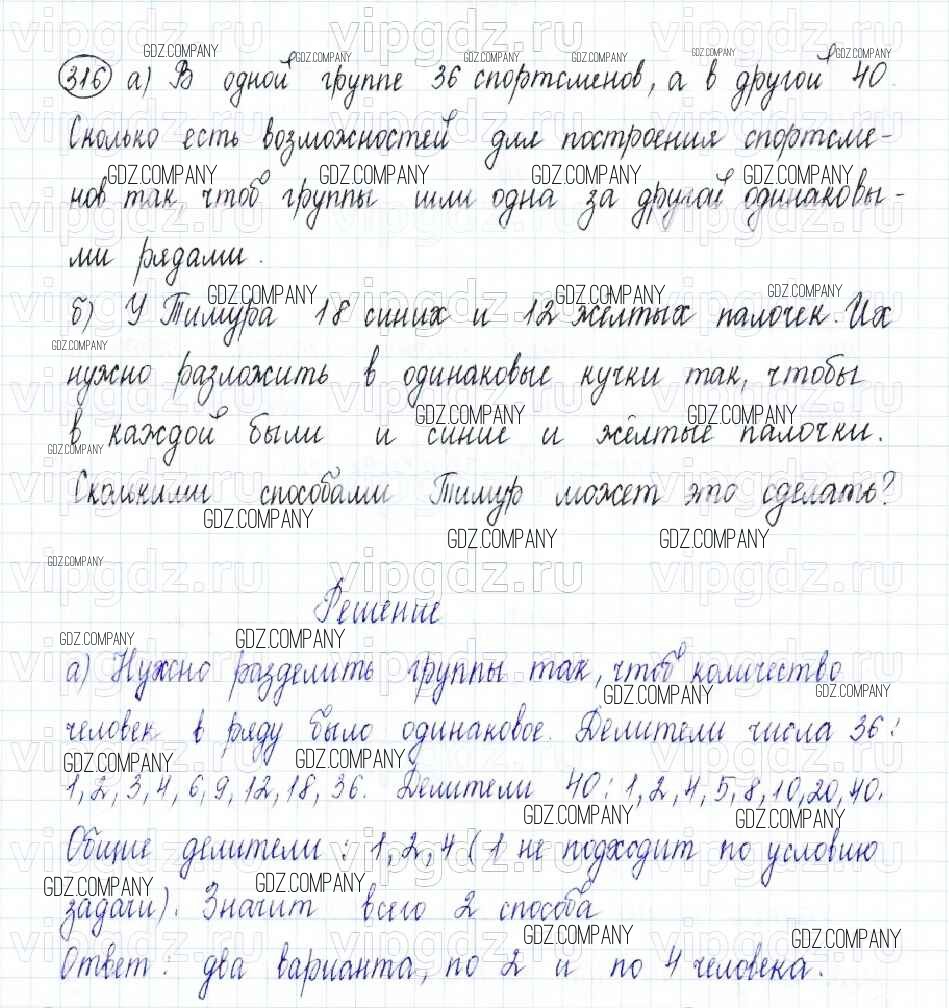 316 а) В одной группе 36 спортсменов, а в другой 40.
Сколько есть возможностей для построения спортсме-
нов так, чтоб группы шли одна за другой одинаковы-
ми рядами.
б) У Тимура 18 синих и 12 жёлтых палочек. Их
нужно разложить в одинаковые кучки так, чтобы
в каждой были и синие и жёлтые палочки.
Сколькими способами Тимур может это сделать?
Решение
а) Нужно разделить группы так, чтоб количество
человек в ряду было одинаковое. Делители числа 36:
1, 2, 3, 4, 6, 9, 12, 18, 36. Делители 40: 1, 2, 4, 5, 8, 10, 20, 40.
Общие делители: 1, 2, 4 (1 не подходит по условию
задачи). Значит всего 2 способа
Ответ: два варианта, по 2 и по 4 человека.